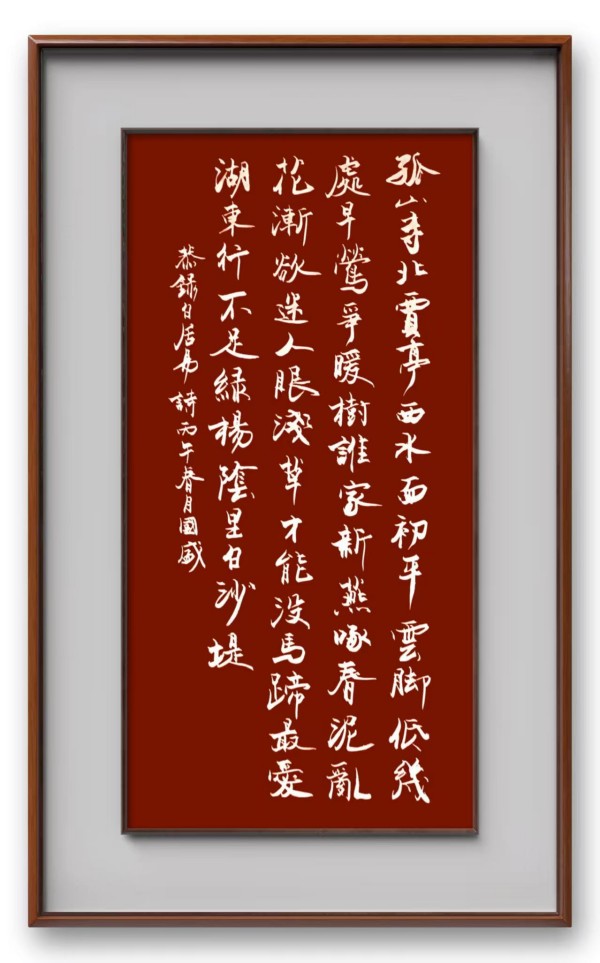 孤山寺北賈亭西水面初平雲脚低幾
處早鶯爭暖樹誰家新燕啄春泥亂
花漸欲迷人眼淺草才能沒馬蹄最愛
湖東行不足綠楊陰里白沙堤
恭錄白居易詩丙午春月國盛